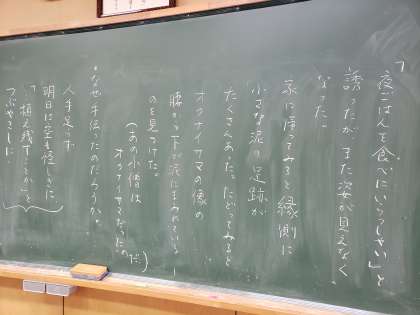 「夜ごはんを食べにいらっしゃい」と
誘ったが、また姿が見えなく
なった。
家に帰ってみると縁側に
小さな泥の足跡が
たくさんあった。たどってみると
オクナイサマの像の
腰から下が泥にまみれている
のを見つけた。
(あの小僧は
オクナイサマだったのだ)
・なぜ手伝ったのだろうか。
人手足らず
明日は空も怪しきに
「植え残すことか」と
つぶやきしに